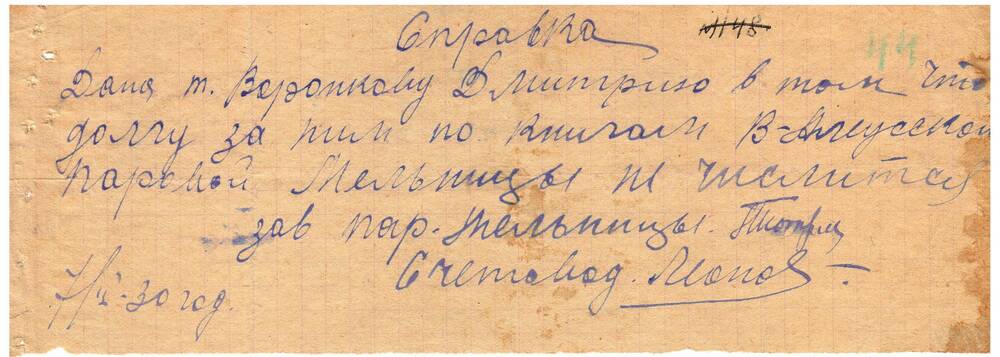 Справка
№148
44
Дана т. Воронкову Дмитрию в том что
долгу за ним по книгам
паровой Мельницы не числится
зав пар. Мельницы.
Счетовод. Леонов
30 год.